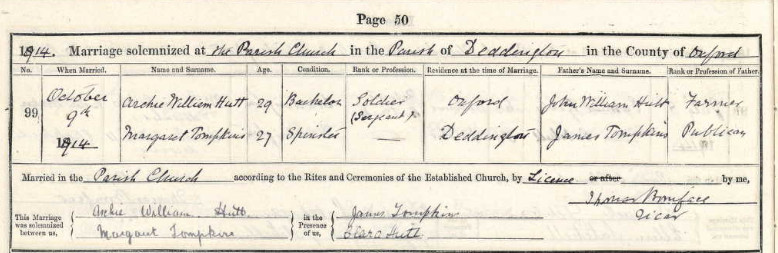 Page 50
1914. Marriage solemnized at The Parish Church in the Parish of Deddington in the County of Oxford
No. When Married. Name and Surname. Age. Condition. Rank or Profession. Residence at the time of Marriage. Father's Name and Surname. Rank or Profession of Father.
99 October 9th 1914 Archie William Hutt 29 Bachelor Soldier (Sergeant) Oxford John William Hutt Farmer
Margaret Tompkins 27 Spinster — Deddington James Tompkins Publican
Married in the Parish Church according to the Rites and Ceremonies of the Established Church, by Licence or after by me,
Thomas Boniface
Vicar
This Marriage was solemnized between us, Archie William Hutt. in the Presence of us, James Tompkins
Margaret Tompkins Clara Hutt